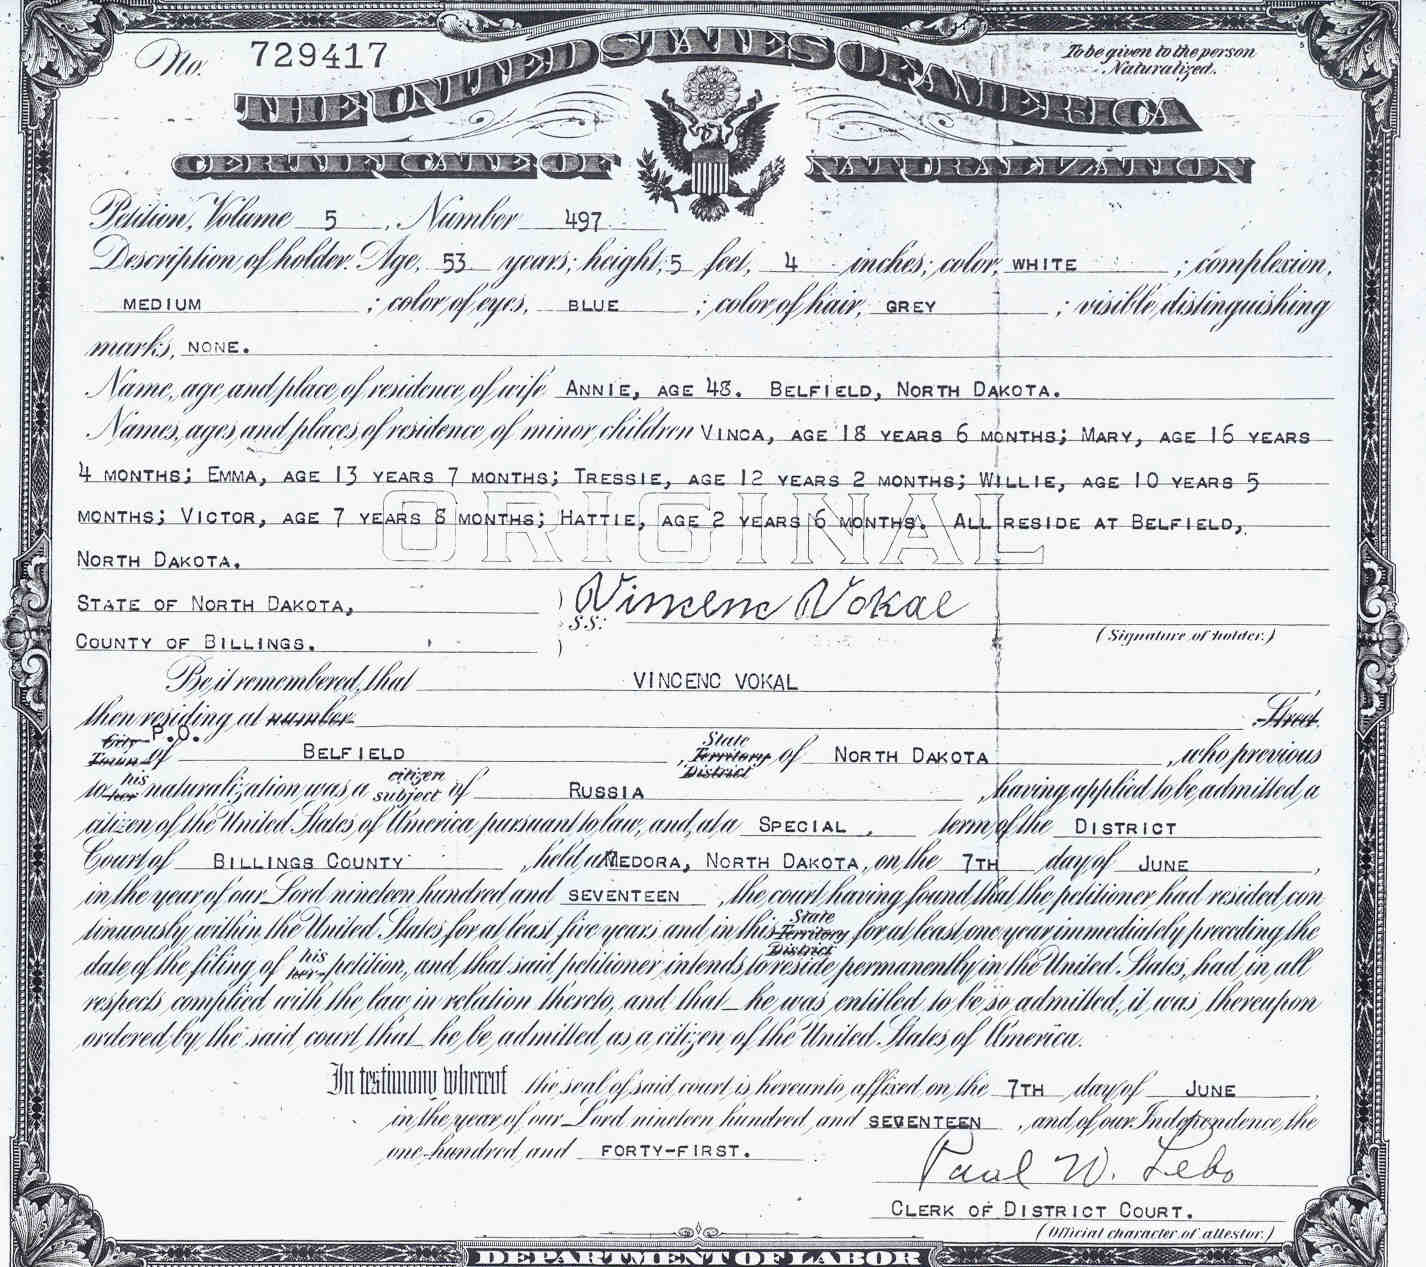 No. 729417
To be given to the person
Naturalized.
THE UNITED STATES OF AMERICA
CERTIFICATE OF NATURALIZATION
Petition, Volume 5, Number 497
Description of holder. Age, 53 years; height, 5 feet, 4 inches; color, WHITE; complexion,
MEDIUM; color of eyes, BLUE; color of hair, GREY; visible distinguishing
marks, NONE.
Name, age and place of residence of wife ANNIE, AGE 48. BELFIELD, NORTH DAKOTA.
Names, ages and places of residence of minor children VINCA, AGE 18 YEARS 6 MONTHS; MARY, AGE 16 YEARS
4 MONTHS; EMMA, AGE 13 YEARS 7 MONTHS; TRESSIE, AGE 12 YEARS 2 MONTHS; WILLIE, AGE 10 YEARS 5
MONTHS; VICTOR, AGE 7 YEARS 8 MONTHS; HATTIE, AGE 2 YEARS 6 MONTHS. ALL RESIDE AT BELFIELD,
ORIGINAL
NORTH DAKOTA.
STATE OF NORTH DAKOTA, ) Vincenc Vokal
S.S:
COUNTY OF BILLINGS. ) (Signature of holder.)
Be it remembered, that VINCENC VOKAL,
then residing at number Street
City Town P.O. of BELFIELD, State Territory District of NORTH DAKOTA, who previous
to his her naturalization was a citizen subject of RUSSIA, having applied to be admitted a
citizen of the United States of America pursuant to law, and, at a SPECIAL, term of the DISTRICT
Court of BILLINGS COUNTY, held at MEDORA, NORTH DAKOTA, on the 7TH day of JUNE,
in the year of our Lord nineteen hundred and SEVENTEEN, the court having found that the petitioner had resided con
tinuously within the United States for at least five years and in this State Territory District for at least one year immediately preceding the
date of the filing of his her petition, and that said petitioner intends to reside permanently in the United States, had in all
respects complied with the law in relation thereto, and that he was entitled to be so admitted, it was thereupon
ordered by the said court that he be admitted as a citizen of the United States of America.
In testimony whereof the seal of said court is hereunto affixed on the 7TH day of JUNE,
in the year of our Lord nineteen hundred and SEVENTEEN, and of our Independence the
one hundred and FORTY-FIRST.
Paul W. Lebo
CLERK OF DISTRICT COURT.
(Official character of attestor.)
DEPARTMENT OF LABOR